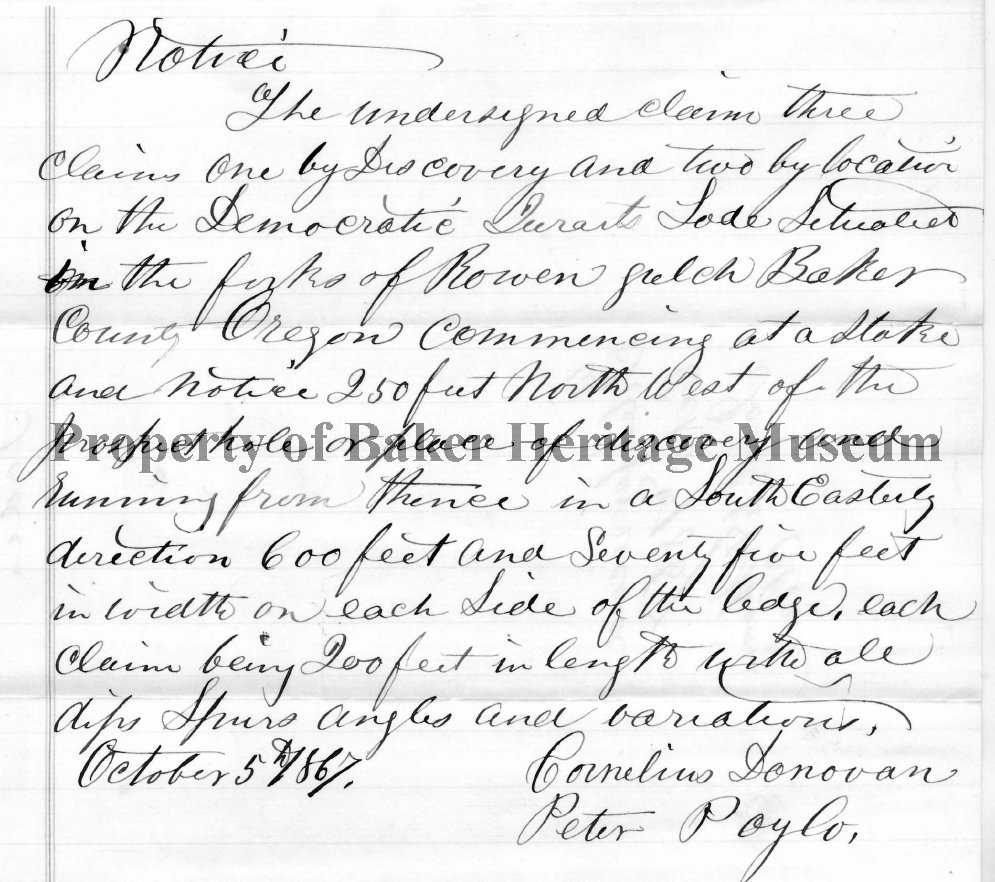 Notice
The undersigned claim three
claims one by Discovery and two by location
on the Democratic Quarts Lode Situated
in the forks of Rowen gulch Baker
County Oregon commencing at a stake
and notice 250 feet North West of the
prospect hole or place of discovery and
Property of Baker Heritage Museum
running from thence in a South Easterly
direction 600 feet and Seventy five feet
in width on each Side of the ledge, each
claim being 200 feet in length with all
dips Spurs angles and variations,
October 5th 1867.
Cornelius Donovan
Peter